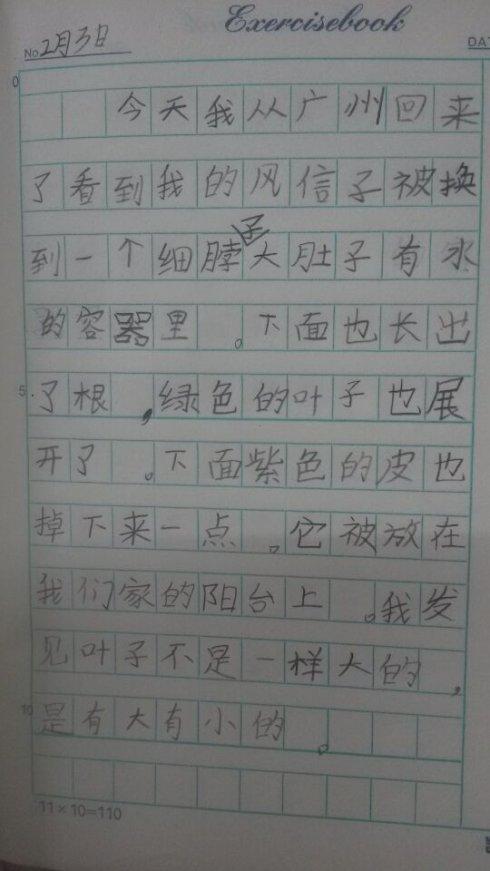 Exercisebook
No. 2月3日
DA
0
今天我从广州回来
了看到我的风信子被换
到一个细脖子大肚子有水
的容器里。下面也长出
5 了根,绿色的叶子也展
开了。下面紫色的皮也
掉下来一点。它被放在
我们家的阳台上。我发
见叶子不是一样大的,
10 是有大有小的。
11×10=110